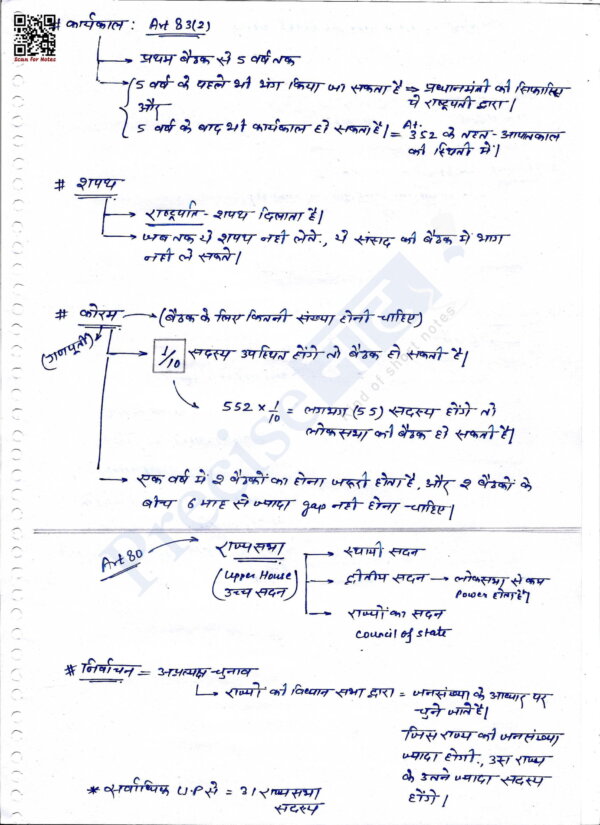 Scan For Notes
# कार्यकाल : Art 83(2)
→ प्रथम बैठक से 5 वर्ष तक
→ 5 वर्ष के पहले भी भंग किया जा सकता है ⇒ प्रधानमंत्री की सिफारिश
पे राष्ट्रपती द्वारा।
और
5 वर्ष के बाद भी कार्यकाल हो सकता है। = Art. 352 के तहत - आपातकाल
की स्थिती में।
# शपथ
→ राष्ट्रपति - शपथ दिलाता है।
→ जब तक ये शपथ नहीं लेते, ये संसद की बैठक में भाग
नहीं ले सकते।
# कोरम → (बैठक के लिए कितनी संख्या होनी चाहिए)
(गणपूर्ती)
→ 1/10 सदस्य उपस्थित होंगे तो बैठक हो सकती है।
552 × 1/10 = लगभग (55) सदस्य होंगे तो
लोकसभा की बैठक हो सकती है।
→ एक वर्ष में 2 बैठकों का होना जरूरी होता है, और 2 बैठकों के
बीच 6 माह से ज्यादा gap नहीं होना चाहिए।
Art 80 → राज्यसभा → स्थायी सदन
(Upper House → द्वितीय सदन → लोकसभा से कम
उच्च सदन) Power होता है।
→ राज्यों का सदन
Council of state
* निर्वाचन = अप्रत्यक्ष चुनाव
→ राज्यों की विधान सभा द्वारा = जनसंख्या के आधार पर
चुने जाते है।
जिस राज्य की जनसंख्या
ज्यादा होगी, उस राज्य
के उतने ज्यादा सदस्य
होंगे।
* सर्वाधिक U.P से = 31 राज्यसभा
सदस्य
Precise
of short notes